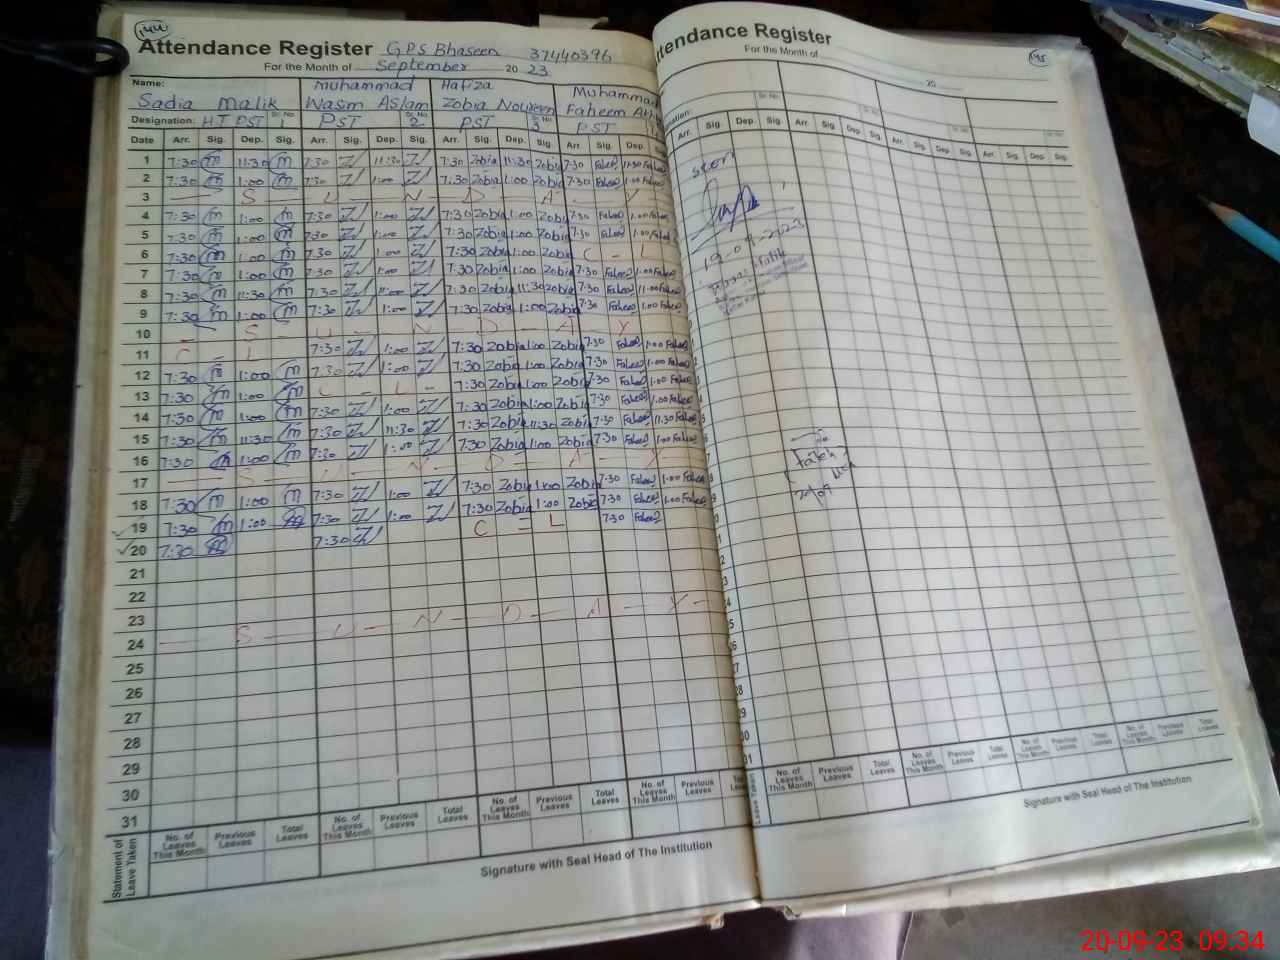 144
Attendance Register GPS Bhaseen 37440396
For the Month of September 20 23
Name: Sadia Malik Muhammad Wasim Aslam Hafiza Zobia Noureen Muhammad Faheem
Designation: HT PST Sr. No 1 PST Sr. No 2 PST Sr. No 3 PST
Date Arr. Sig. Dep. Sig. Arr. Sig. Dep. Sig. Arr. Sig. Dep. Sig. Arr. Sig. Dep. Sig.
1 7:30 m 11:30 m 7:30 11:30 7:30 Zobia 11:30 Zobia 7:30 Faheem 11:30 Faheem
2 7:30 m 1:00 m 7:30 1:00 7:30 Zobia 1:00 Zobia 7:30 Faheem 1:00 Faheem
3 S U N D A Y
4 7:30 m 1:00 m 7:30 1:00 7:30 Zobia 1:00 Zobia 7:30 Faheem 1:00 Faheem
5 7:30 m 1:00 m 7:30 1:00 7:30 Zobia 1:00 Zobia 7:30 Faheem 1:00 Faheem
6 7:30 m 1:00 m 7:30 1:00 7:30 Zobia 1:00 Zobia C - L
7 7:30 m 1:00 m 7:30 1:00 7:30 Zobia 1:00 Zobia 7:30 Faheem 1:00 Faheem
8 7:30 m 11:30 m 7:30 11:00 7:30 Zobia 11:30 Zobia 7:30 Faheem 11:00 Faheem
9 7:30 m 1:00 m 7:30 1:00 7:30 Zobia 1:00 Zobia 7:30 Faheem 1:00 Faheem
10 S U N D A Y
11 C - L 7:30 1:00 7:30 Zobia 1:00 Zobia 7:30 Faheem 1:00 Faheem
12 7:30 m 1:00 m 7:30 1:00 7:30 Zobia 1:00 Zobia 7:30 Faheem 1:00 Faheem
13 7:30 m 1:00 m C - L - 7:30 Zobia 1:00 Zobia 7:30 Faheem 1:00 Faheem
14 7:30 m 1:00 m 7:30 1:00 7:30 Zobia 1:00 Zobia 7:30 Faheem 1:00 Faheem
15 7:30 m 11:30 m 7:30 11:30 7:30 Zobia 11:30 Zobia 7:30 Faheem 11:30 Faheem
16 7:30 m 1:00 m 7:30 1:00 7:30 Zobia 1:00 Zobia 7:30 Faheem 1:00 Faheem
17 S U N D A Y
18 7:30 m 1:00 m 7:30 1:00 7:30 Zobia 1:00 Zobia 7:30 Faheem 1:00 Faheem
19 7:30 m 1:00 7:30 1:00 7:30 Zobia 1:00 Zobia 7:30 Faheem 1:00 Faheem
20 7:30 7:30 C - L 7:30 Faheem
21
22
23
24 S U N D A Y
25
26
27
28
29
30
31
Statement of Leave Taken
No. of Leaves This Month Previous Leaves Total Leaves No. of Leaves This Month Previous Leaves Total Leaves No. of Leaves This Month Previous Leaves Total Leaves No. of Leaves This Month Previous Leaves
Signature with Seal Head of The Institution
145
Attendance Register
For the Month of 20
Sr. No Sr. No Sr. No Sr. No
Arr. Sig. Dep. Sig. Arr. Sig. Dep. Sig. Arr. Sig. Dep. Sig. Arr. Sig. Dep. Sig.
19-09-2023
20/09
No. of Leaves This Month Previous Leaves Total Leaves No. of Leaves This Month Previous Leaves Total Leaves No. of Leaves This Month Previous Leaves Total Leaves No. of Leaves This Month Previous Leaves Total Leaves
Signature with Seal Head of The Institution
20-09-23 09:34